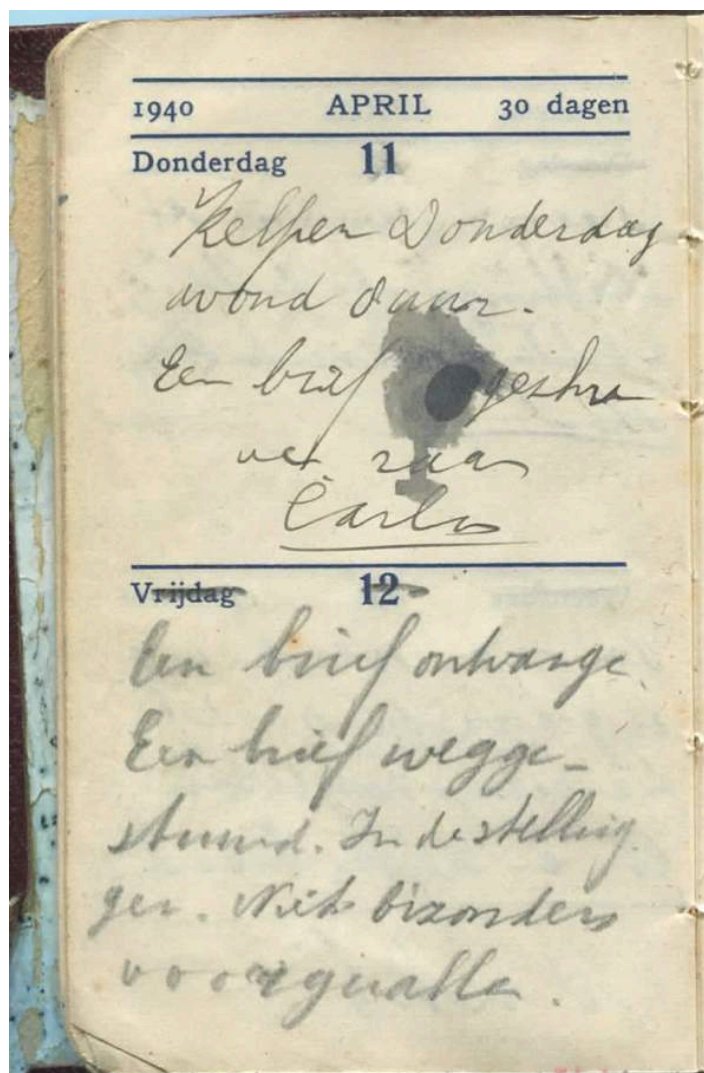 1940 APRIL 30 dagen
Donderdag 11
Kelpen Donderdag
avond 8 uur.
Een brief geschre
ven naar
Carlos
Vrijdag 12
Een brief ontvange.
Een brief wegge-
stuurd. In de stelling
gen. Niets bizonders
voorgevalle.